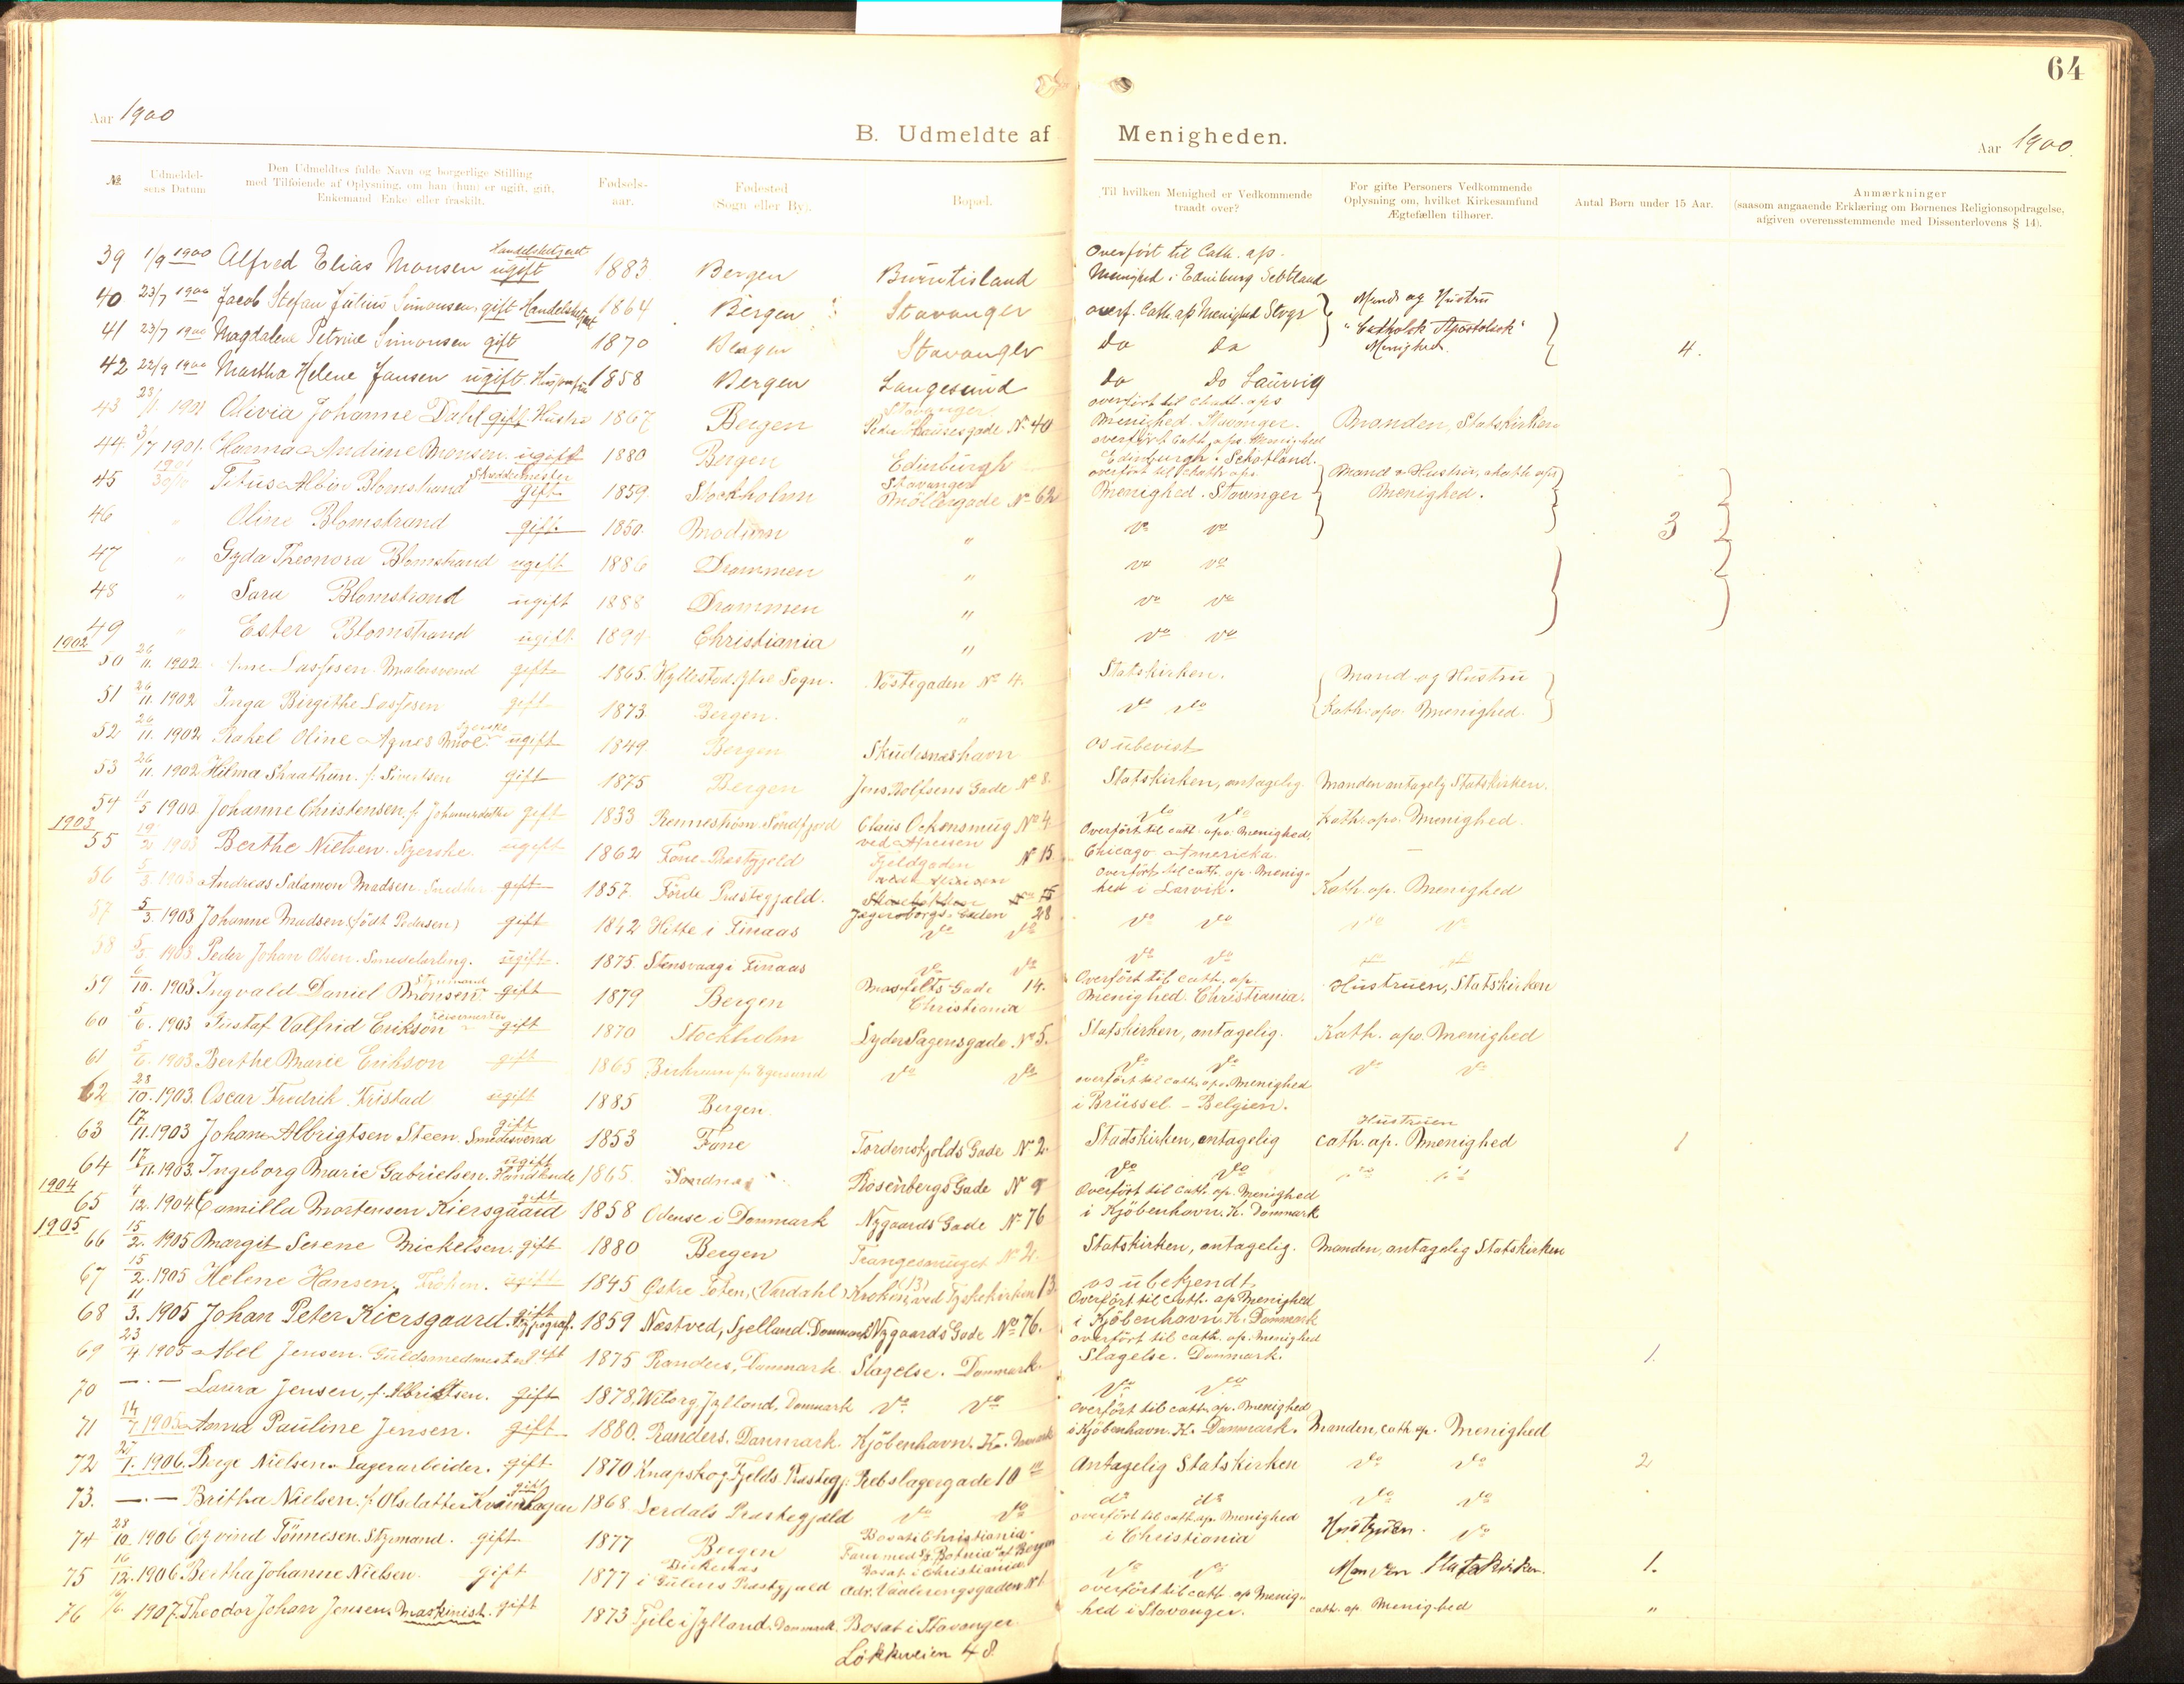 64
Aar 1900
B. Udmeldte af Menigheden.
Aar 1900.
№ Udmeldelsens Datum Den Udmeldtes fulde Navn og borgerlige Stilling med Tilføiende af Oplysning, om han (hun) er ugift, gift, Enkemand Enke eller fraskilt. Fødselsaar. Fødested (Sogn eller By). Bopæl. Til hvilken Menighed er Vedkommende traadt over? For gifte Personers Vedkommende Oplysning om, hvilket Kirkesamfund Ægtefællen tilhører. Antal Børn under 15 Aar. Anmærkninger (saasom angaaende Erklæring om Børnenes Religionsopdragelse, afgiven overensstemmende med Dissenterlovens § 14).
39 1/9 1900 Alfred Elias Monsen Handelsbetjent ugift 1883 Bergen Burntisland Overført til Cath. ap. Menighed i Edinburg Scotland
40 23/7 1900 Jacob Stefan Julius Simonsen, gift Handelsbetjent 1864 Bergen Stavanger overf. Cath. ap Menighed Stvgr Mand og Hustru
41 23/7 1900 Magdalene Petrine Simonsen gift 1870 Bergen Stavanger do do "Catholsk Apostolisk" Menighed. 4.
42 22/9 1900 Martha Helene Jansen ugift 1858 Bergen Langesund do do Laurvig
43 23/11 1901 Olivia Johanne Dahl gift Hustru 1867 Bergen Stavanger Peder Clausesgade No 40 overført til Cath. aps Menighed. Stavanger. Manden, Statskirken
44. 3/7 1901. Hanna Andrine Monsen. ugift 1880 Bergen Edinburgh overført Cath. aps. Menighed Edinburgh. Schotland.
45 1901 30/11 Titus Albin Blomstrand Skreddermester gift 1859. Stockholm Stavanger Møllergade No 62 overført til Cath. aps. Menighed. Stavanger Mand & Hustru, Cath. aps Menighed.
46 " Oline Blomstrand gift 1850. Modum " do do 3
47 " Gyda Theonora Blomstrand ugift 1886 Drammen " do do
48 " Sara Blomstrand ugift 1888 Drammen " do do
49 " Ester Blomstrand ugift 1894 Christiania " do do
1902
50 26/11. 1902 Lassesen. Malersvend gift 1865. Hyllestad Ytre Sogn. Nøstegaden No 4. Statskirken. Mand og Hustru
51 26/11. 1902 Inga Birgithe Lassesen gift 1873. Bergen. " do do Kath. apo. Menighed.
52 26/11. 1902 Rakel Oline Agnes Moe. Syerske ugift 1849. Bergen Skudesneshavn os ubevist
53 26/11. 1902 Hilma Skaathun. f. Sivertsen gift 1875 Bergen Jens Rolfsens Gade No 8. Statskirken, antagelig. Manden antagelg Statskirken.
54 11/5 1900. Johanne Christensen. f. Johannesdatter gift 1833 Sundfjord Claus Ockensmug No 4 do do Kath. apo. Menighed.
1903
55 19/2 1903 Berthe Nielsen. Syerske. ugift 1862 Fane Præstgjeld Fjeldgaden No 15. Overført til cath. apo. Menighed, Chicago Amerika. —
56 5/3. 1903 Andreas Salamon Madsen. Smed gift 1857. Førde Præstegjæld. overført til cath. ap. Menighed i Larvik. Kath. ap. Menighed
57 5/3. 1903 Johanne Madsen (født Pedersen) gift 1842 Hitte i Finaas do do do do do do
58 5/3. 1903 Peder Johan Olsen. Smedelærling. ugift. 1875. Stensvaag i Finaas do do do do
59 6/10. 1903. Ingvald Daniel Monsen. Styrmand gift 1879 Bergen Gade 14. Christiania Overført til cath. ap. Menighed. Christiania. Hustruen, Statskirken
60 5/6. 1903 Gustaf Valfrid Erikson gift 1870 Stockholm Lyder Sagensgade No 5. Statskirken, antagelig. Kath. apo. Menighed
61 5/6. 1903. Berthe Marie Erikson gift 1865 Egersund do do do do do do
62 28/10. 1903. Oscar Fredrik Kristad ugift 1885 Bergen. overført til cath. ap. Menighed i Brüssel - Belgien.
63 17/11. 1903 Johan Albrigtsen Steen. Smedesvend gift 1853 Fane Tordenskjolds Gade No 2. Stadskirken, antagelig Hustruen cath. ap. Menighed 1
64 17/11. 1903. Ingeborg Marie Gabrielsen. Handlende ugift 1865. Sandnæs Rosenbergs Gade No 9 do do
1904
65 4/12. 1904 Camilla Mortensen Kiersgaard gift 1858 Odense i Danmark Nygaards Gade No 76 Overført til Cath. ap. Menighed i Kjøbenhavn. K. Danmark
1905
66 15/2. 1905 Margit Serene Mickelsen. gift 1880 Bergen Trangesmuget No 2. Statskirken, antagelig. Manden, antagelig Statskirken
67 15/2. 1905 Helene Hansen. Frøken. ugift 1845 Østre Toten, (Vardahl) Kroken (13) ved Tyskekirken 13. os ubekjendt.
68 11/3. 1905 Johan Peter Kiersgaard. gift Typograf. 1859 Næstved, Sjelland. Danmark Nygaards Gade No 76. Overført til Cath. ap Menighed i Kjøbenhavn K. Danmark
69 23/4 1905 Abel Jensen. Guldsmedmester gift 1875 Randers, Danmark Slagelse. Danmark. overført til cath. ap. Menighed Slagelse. Danmark. 1.
70 — . — Laura Jensen, f. Albriktsen. gift 1878. Wiborg, Jylland, Danmark do do do do
71 14/7 1905 Anna Pauline Jensen. gift 1880. Randers. Danmark. Kjøbenhavn. K. Danmark overført til cath. ap. Menighed i Kjøbenhavn. K. Danmark. Manden, cath. ap. Menighed
72 27/1. 1906. Børge Nielsen. Lagerarbeider. gift 1870 Præstegj. Rebslagergade 10 Antagelig Statskirken do do 2
73. — . — Britha Nielsen. f. Olsdatter gift 1868 Lerdals Præstegjæld do do do do do do
74 28/10. 1906 Eyvind Tønnesen. Styrmand. gift. 1877 Bergen Bosat i Christiania. Farer med S/S "Botnia" af Bergen overført til cath. ap. Menighed i Christiania Hustruen. do
75 16/12. 1906. Bertha Johanne Nielsen. gift 1877 i Gulens Præstgjæld Bosat i Christiania. adr. Vaalerengsgaden No 1 do do Manden Statskirken. 1.
76 1907. Theodor Johan Jensen. Maskinist. gift 1873 Tjele i Jylland. Danmark. Bosat i Stavanger. overført til cath. ap Menighed i Stavanger. cath. ap. Menighed "
Løkkeveien 48.